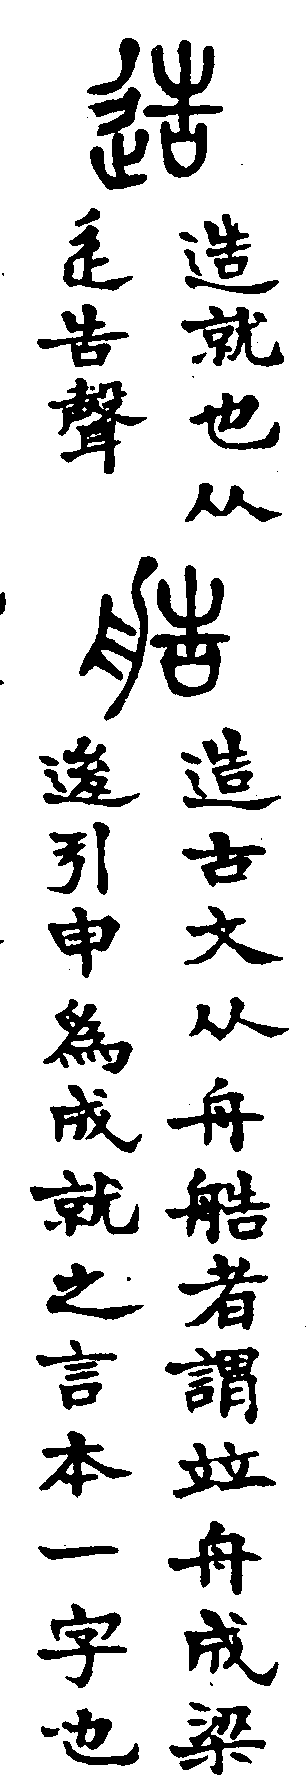 造
造就也从
辵告聲
艁
造古文从舟艁者謂竝舟成梁
後引申為成就之言本一字也